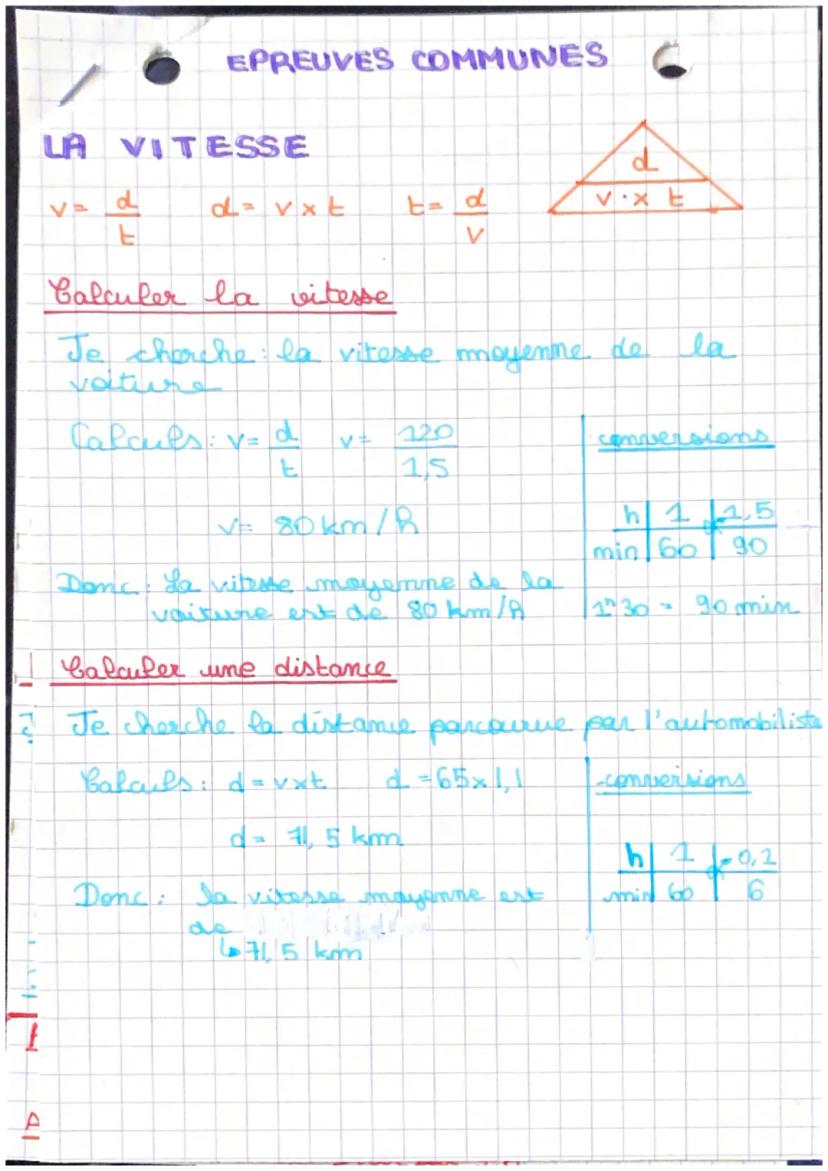 EPREUVES COMMUNES
LA VITESSE
d
v · x t
v = d/t d = v x t t = d/v
Calculer la vitesse
Je cherche : la vitesse moyenne de la
voiture
Calculs : v = d/t v = 120/1,5
v = 80 km/h
Donc : La vitesse moyenne de la
voiture est de 80 km/h
conversions
h 1 1,5
min 60 90
1h30 = 90 min
Calculer une distance
Je cherche la distance parcourue par l'automobiliste
Calculs : d = vxt d = 65x1,1
d = 71,5 km
Donc : la vitesse moyenne est
de
↳ 71,5 km
conversions
h 1
min 60 6